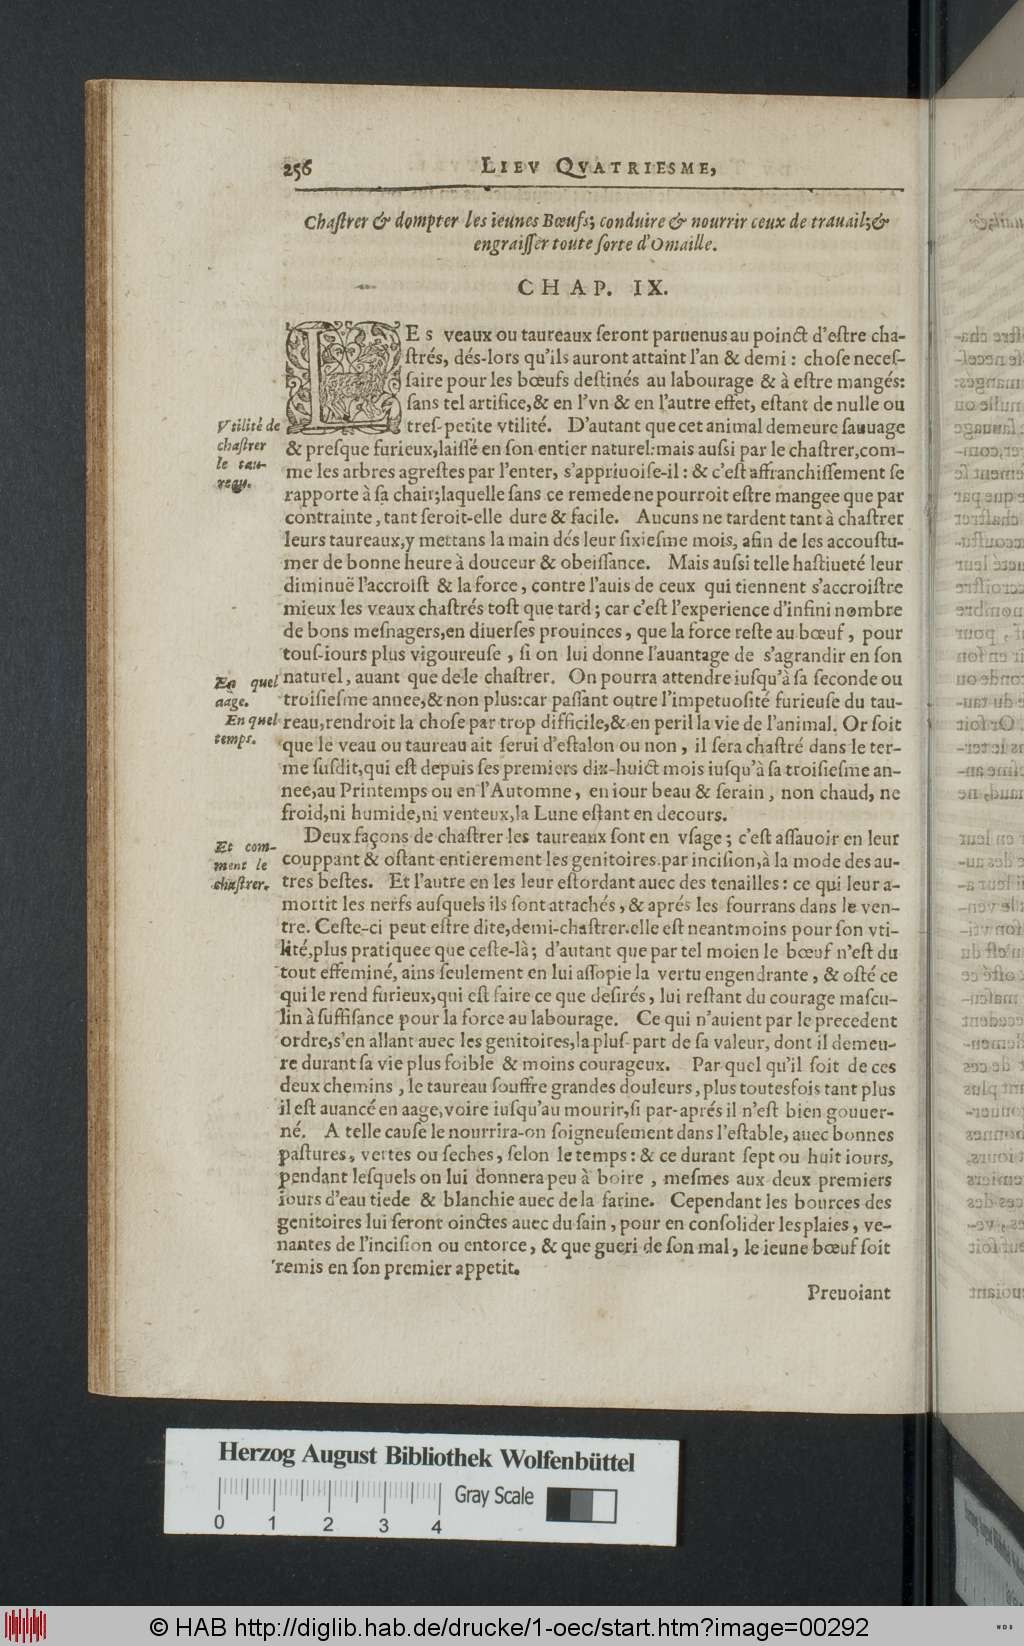 256 LIEV QVATRIESME,
Chaſtrer & dompter les ieunes Bœufs; conduire & nourrir ceux de trauail; &
engraiſſer toute ſorte d'Omaille.
CHAP. IX.
LEs veaux ou taureaux ſeront paruenus au poinct d'eſtre cha-
ſtrés, dés-lors qu'ils auront attaint l'an & demi: choſe neceſ-
ſaire pour les bœufs deſtinés au labourage & à eſtre mangés:
ſans tel artifice, & en l'vn & en l'autre effet, eſtant de nulle ou
treſ-petite vtilité. D'autant que cet animal demeure ſauuage
& preſque furieux, laiſſé en ſon entier naturel: mais auſsi par le chaſtrer, com-
me les arbres agreſtes par l'enter, s'appriuoiſe-il: & c'eſt affranchiſſement ſe
rapporte à ſa chair; laquelle ſans ce remede ne pourroit eſtre mangee que par
contrainte, tant ſeroit-elle dure & facile. Aucuns ne tardent tant à chaſtrer
leurs taureaux, y mettans la main dés leur ſixieſme mois, afin de les accouſtu-
mer de bonne heure à douceur & obeiſſance. Mais auſsi telle haſtiueté leur
diminuë l'accroiſt & la force, contre l'auis de ceux qui tiennent s'accroiſtre
mieux les veaux chaſtrés toſt que tard; car c'eſt l'experience d'infini nombre
de bons meſnagers, en diuerſes prouinces, que la force reſte au bœuf, pour
touſ-iours plus vigoureuſe, ſi on lui donne l'auantage de s'agrandir en ſon
naturel, auant que de le chaſtrer. On pourra attendre iuſqu'à ſa ſeconde ou
troiſieſme annee, & non plus: car paſſant outre l'impetuoſité furieuſe du tau-
reau, rendroit la choſe par trop difficile, & en peril la vie de l'animal. Or ſoit
que le veau ou taureau ait ſerui d'eſtalon ou non, il ſera chaſtré dans le ter-
me ſuſdit, qui eſt depuis ſes premiers dix-huict mois iuſqu'à ſa troiſieſme an-
nee, au Printemps ou en l'Automne, en iour beau & ſerain, non chaud, ne
froid, ni humide, ni venteux, la Lune eſtant en decours.
Deux façons de chaſtrer les taureaux ſont en vſage; c'eſt aſſauoir en leur
couppant & oſtant entierement les genitoires par inciſion, à la mode des au-
tres beſtes. Et l'autre en les leur eſtordant auec des tenailles: ce qui leur a-
mortit les nerfs auſquels ils ſont attachés, & aprés les fourrans dans le ven-
tre. Ceſte-ci peut eſtre dite, demi-chaſtrer. elle eſt neantmoins pour ſon vti-
lité, plus pratiquee que ceſte-là; d'autant que par tel moien le bœuf n'eſt du
tout effeminé, ains ſeulement en lui aſſopie la vertu engendrante, & oſté ce
qui le rend furieux, qui eſt faire ce que deſirés, lui reſtant du courage maſcu-
lin à ſuffiſance pour la force au labourage. Ce qui n'auient par le precedent
ordre, s'en allant auec les genitoires, la pluſ-part de ſa valeur, dont il demeu-
re durant ſa vie plus foible & moins courageux. Par quel qu'il ſoit de ces
deux chemins, le taureau ſouffre grandes douleurs, plus toutesfois tant plus
il eſt auancé en aage, voire iuſqu'au mourir, ſi par-aprés il n'eſt bien gouuer-
né. A telle cauſe le nourrira-on ſoigneuſement dans l'eſtable, auec bonnes
paſtures, vertes ou ſeches, ſelon le temps: & ce durant ſept ou huit iours,
pendant leſquels on lui donnera peu à boire, meſmes aux deux premiers
iours d'eau tiede & blanchie auec de la farine. Cependant les bources des
genitoires lui ſeront oinctes auec du ſain, pour en conſolider les plaies, ve-
nantes de l'inciſion ou entorce, & que gueri de ſon mal, le ieune bœuf ſoit
remis en ſon premier appetit.
Preuoiant
Vtilité de
chaſtrer
le tau-
reau.
En quel
aage.
En quel
temps.
Et com-
ment le
chaſtrer.
Herzog August Bibliothek Wolfenbüttel
0 1 2 3 4
Gray Scale
© HAB http://diglib.hab.de/drucke/1-oec/start.htm?image=00292